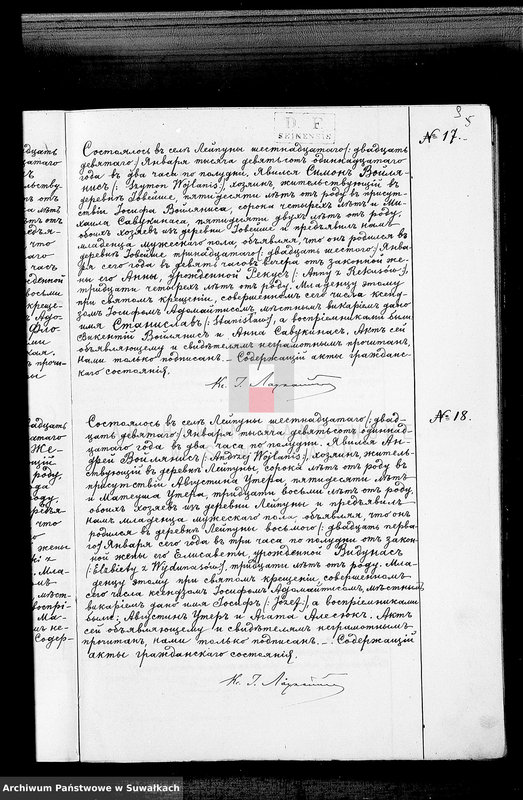 D. F.
SEJNENSIS
№ 17.
Состоялось въ селѣ Лейпуны шестнадцатаго /: двадцать
девятаго:/ Января тысяча девятьсотъ одиннадцатаго
года въ два часа по полудни. Явился Симонъ Войля-
нисъ /: Szymon Wojlanis:/, хозяинъ, жительствующій въ
деревнѣ, пятидесяти лѣтъ отъ роду въ присут-
ствіи Іосифа Войляниса, сорока четырехъ лѣтъ и Ми-
хаила Савукинаса, пятидесяти двухъ лѣтъ отъ роду,
обоихъ хозяевъ изъ деревни и предъявилъ намъ
младенца мужескаго пола, объявляя, что онъ родился въ
деревнѣ тринадцатаго /: двадцать шестого:/ Янва-
ря сего года въ девять часовъ вечера отъ законной же-
ны его Анны, урожденной Рекусъ /: Anny z Rekusów:/,
тридцати четырехъ лѣтъ отъ роду. Младенцу этому
при святомъ крещеніи, совершенномъ сего числа ксенд-
зомъ Іосифомъ Адомайтисомъ мѣстнымъ викаріемъ дано
имя Станиславъ /: Stanisław:/, а воспріемниками были
Викентій Войлянисъ и Анна Савукинасъ. Актъ сей
объявляющему и свидѣтелямъ неграмотнымъ прочитанъ,
нами только подписанъ. – Содержащій акты гражданс-
каго состоянія.
Кс. І.
№ 18.
Состоялось въ селѣ Лейпуны шестнадцатаго /: двад-
цать девятаго:/ Января тысяча девятьсотъ одиннад-
цатаго года въ два часа по полудни. Явился Ан-
дрей Войлянисъ /: Andrzej Wojlanis:/, хозяинъ, житель-
ствующій въ деревнѣ Лейпуны, сорока лѣтъ отъ роду въ
присутствіи Августина Утера, пятидесяти лѣтъ
и Матеуша Утера, тридцати восьми лѣтъ отъ роду,
обоихъ хозяевъ изъ деревни Лейпуны и предъявилъ
намъ младенца мужескаго пола объявляя, что онъ
родился въ деревнѣ Лейпуны восьмого /: двадцать перва-
го:/ Января сего года въ три часа по полудни отъ закон-
ной жены его Елисаветы, урожденной Видунасъ
/: Elżbiety z Wydunasów:/, тридцати лѣтъ отъ роду. Мла-
денцу этому при святомъ крещеніи, совершенномъ
сего числа ксендзомъ Іосифомъ Адомайтисомъ, мѣстнымъ
викаріемъ дано имя Іосифъ /: Józef:/, а воспріемниками
были: Августинъ Утеръ и Агата Алесюкъ. Актъ
сей объявляющему и свидѣтелямъ неграмотнымъ
прочитанъ, нами только подписанъ. – Содержащій
акты гражданскаго состоянія.
Кс. І.
Archiwum Państwowe w Suwałkach